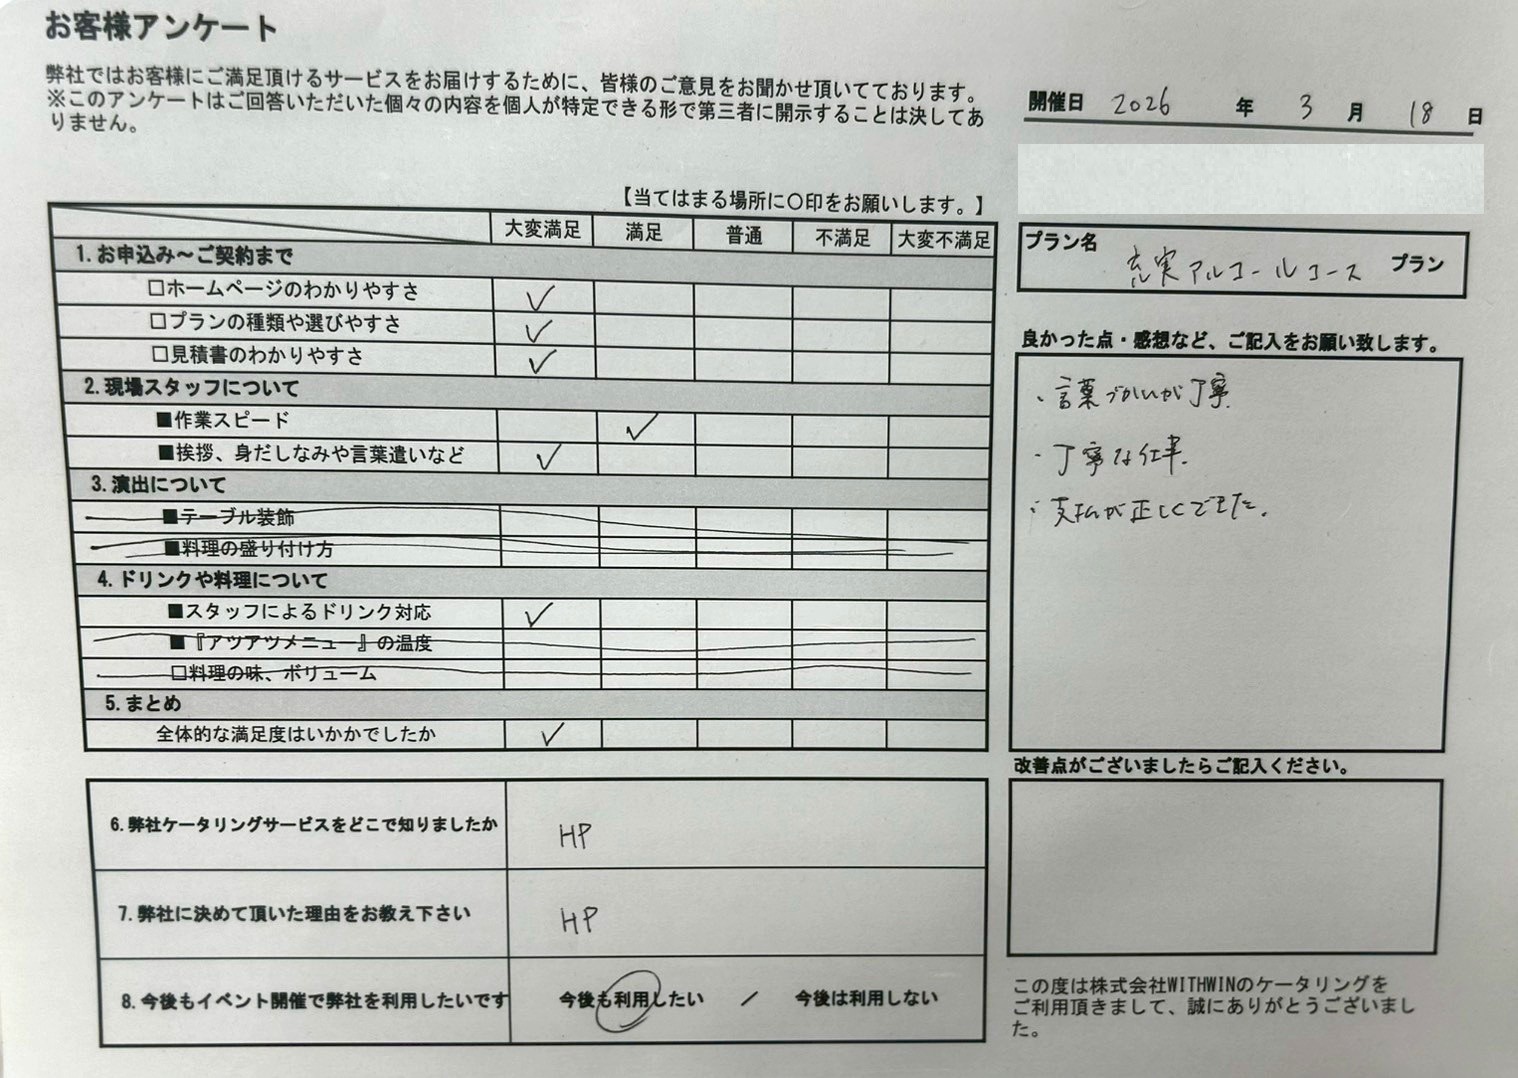 お客様アンケート
弊社ではお客様にご満足頂けるサービスをお届けするために、皆様のご意見をお聞かせ頂いてております。
※このアンケートはご回答いただいた個々の内容を個人が特定できる形で第三者に開示することは決してあ
りません。
開催日 2026 年 3 月 18 日
【当てはまる場所に〇印をお願いします。】
大変満足 満足 普通 不満足 大変不満足
1.お申込み～ご契約まで
□ホームページのわかりやすさ ✓
□プランの種類や選びやすさ ✓
□見積書のわかりやすさ ✓
2.現場スタッフについて
■作業スピード ✓
■挨拶、身だしなみや言葉遣いなど ✓
3.演出について
■テーブル装飾
■料理の盛り付け方
4.ドリンクや料理について
■スタッフによるドリンク対応 ✓
■『アツアツメニュー』の温度
□料理の味、ボリューム
5.まとめ
全体的な満足度はいかかでしたか ✓
6.弊社ケータリングサービスをどこで知りましたか HP
7.弊社に決めて頂いた理由をお教え下さい HP
8.今後もイベント開催で弊社を利用したいです 今後も利用したい ／ 今後は利用しない
プラン名 充実アルコールコース プラン
良かった点・感想など、ご記入をお願い致します。
・言葉づかいが丁寧
・丁寧な仕事
・支払が正しくできた。
改善点がございましたらご記入ください。
この度は株式会社WITHWINのケータリングを
ご利用頂きまして、誠にありがとうございまし
た。